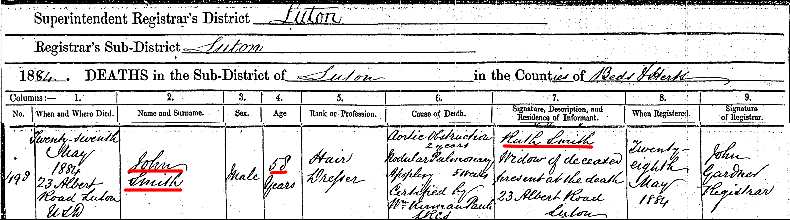 Superintendent Registrar's District Luton
Registrar's Sub-District Luton
1884. DEATHS in the Sub-District of Luton in the Counties of Beds & Herts
Columns:— 1. 2. 3. 4. 5. 6. 7. 8. 9.
No. When and Where Died. Name and Surname. Sex. Age Rank or Profession. Cause of Death. Signature, Description, and Residence of Informant. When Registered. Signature of Registrar.
498
Twenty-seventh
May
1884
23 Albert
Road Luton
U.S.D
John
Smith
Male
58
Years
Hair
Dresser
Aortic Obstruction
2 years
Nodular Pulmonary
Apoplexy 5 weeks
Certified by
Wm Kerman
Ruth Smith
Widow of deceased
Present at the death
23 Albert Road
Luton
Twenty-
eighth
May
1884
John
Gardner
Registrar